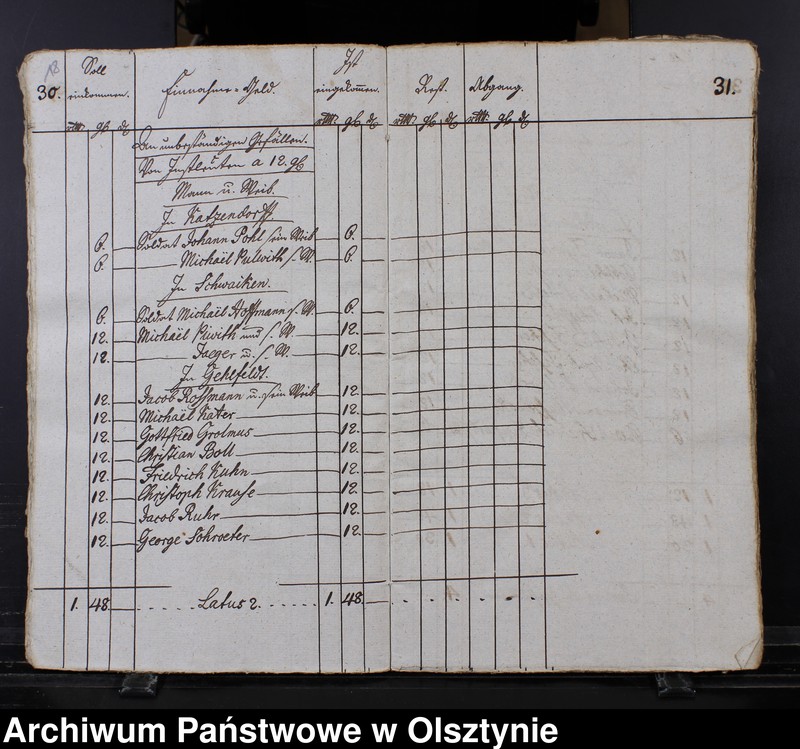 30. Soll einkommen. Einnahme-Geld. Ist eingekommen. Rest. Abgang. 31.
rtl. gl. d. rtl. gl. d. rtl. gl. d. rtl. gl. d.
An unbeständigen Gefällen.
Von Instleuten a 12. gl
Mann u. Weib.
In Katzendorff
6. — Soldat Johann Pohl sein Weib — 6. —
6. — — Michaël Kulwith s. W. — 6. —
In Schwaiken.
6. — Soldat Michaël Hoffmann s. W. — 6. —
12. — Michaël Kiwith und s. W. — 12. —
12. — — Jaeger u. s. W. — 12. —
In Gehlfeldt.
12. — Jacob Roffmann u. sein Weib 12. —
12. — Michaël Kater — 12. —
12. — Gottfried Grolmus — 12. —
12. — Christian Boll — 12. —
12. — Friedrich Kuhn — 12. —
12. — Christoph Krause — 12. —
12. — Jacob Ruhr — 12. —
12. — George Schroeter — 12. —
1. 48. — Latus 2. 1. 48. —
Archiwum Państwowe w Olsztynie